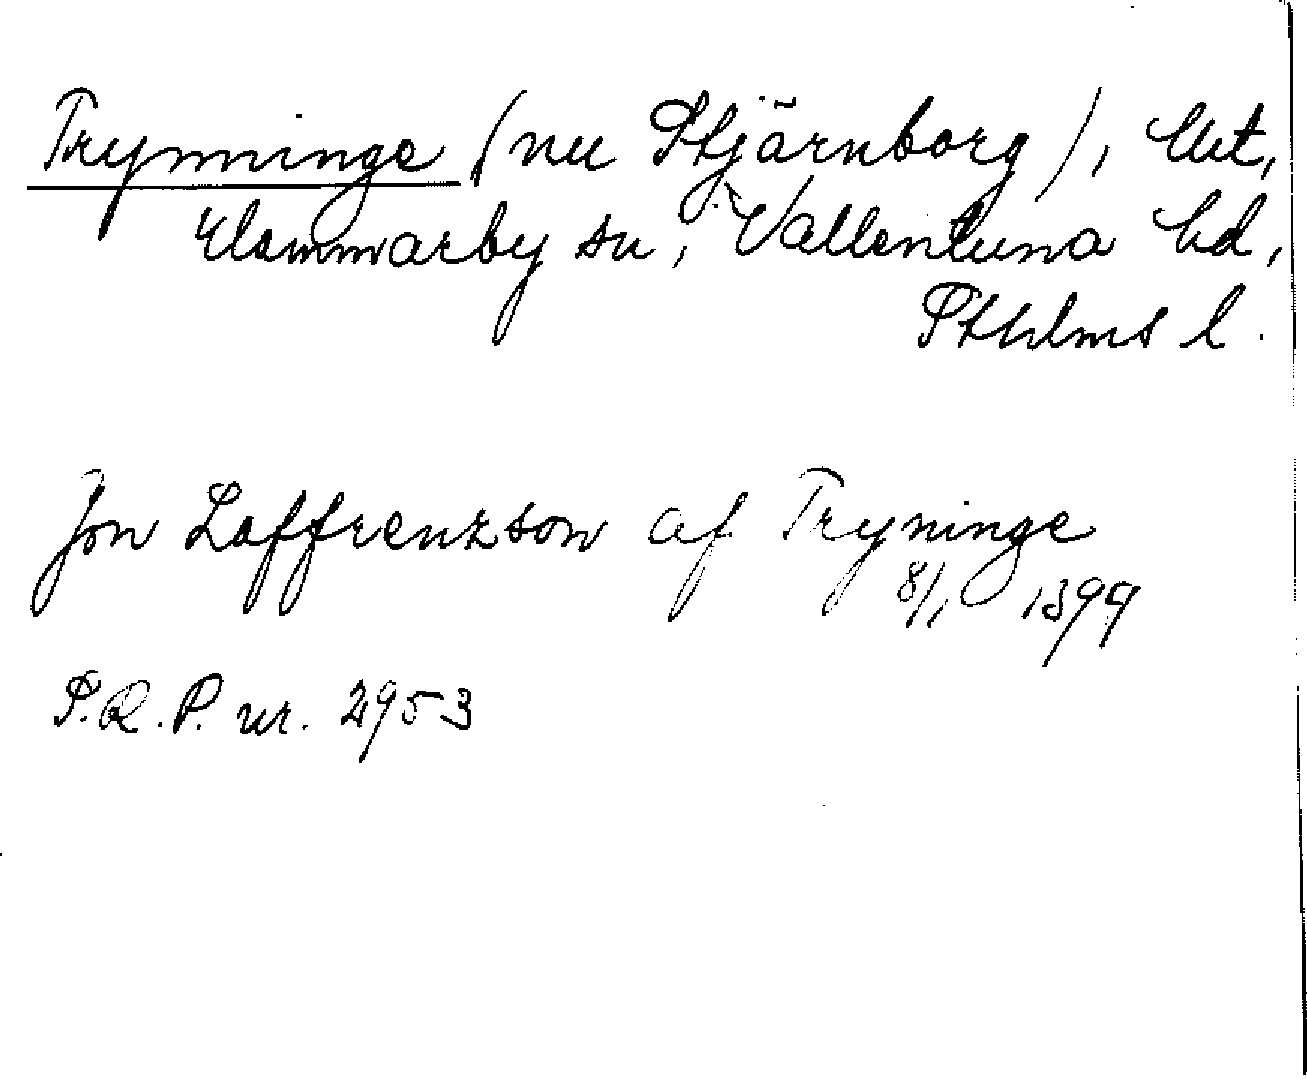 Trynninge (nu Stjärnborg), hst,
Hammarby sn, Vallentuna hd,
Sthlms l.
Jon Laffrenzson af Tryninge
8/1 1399
S.R.P. nr. 2953